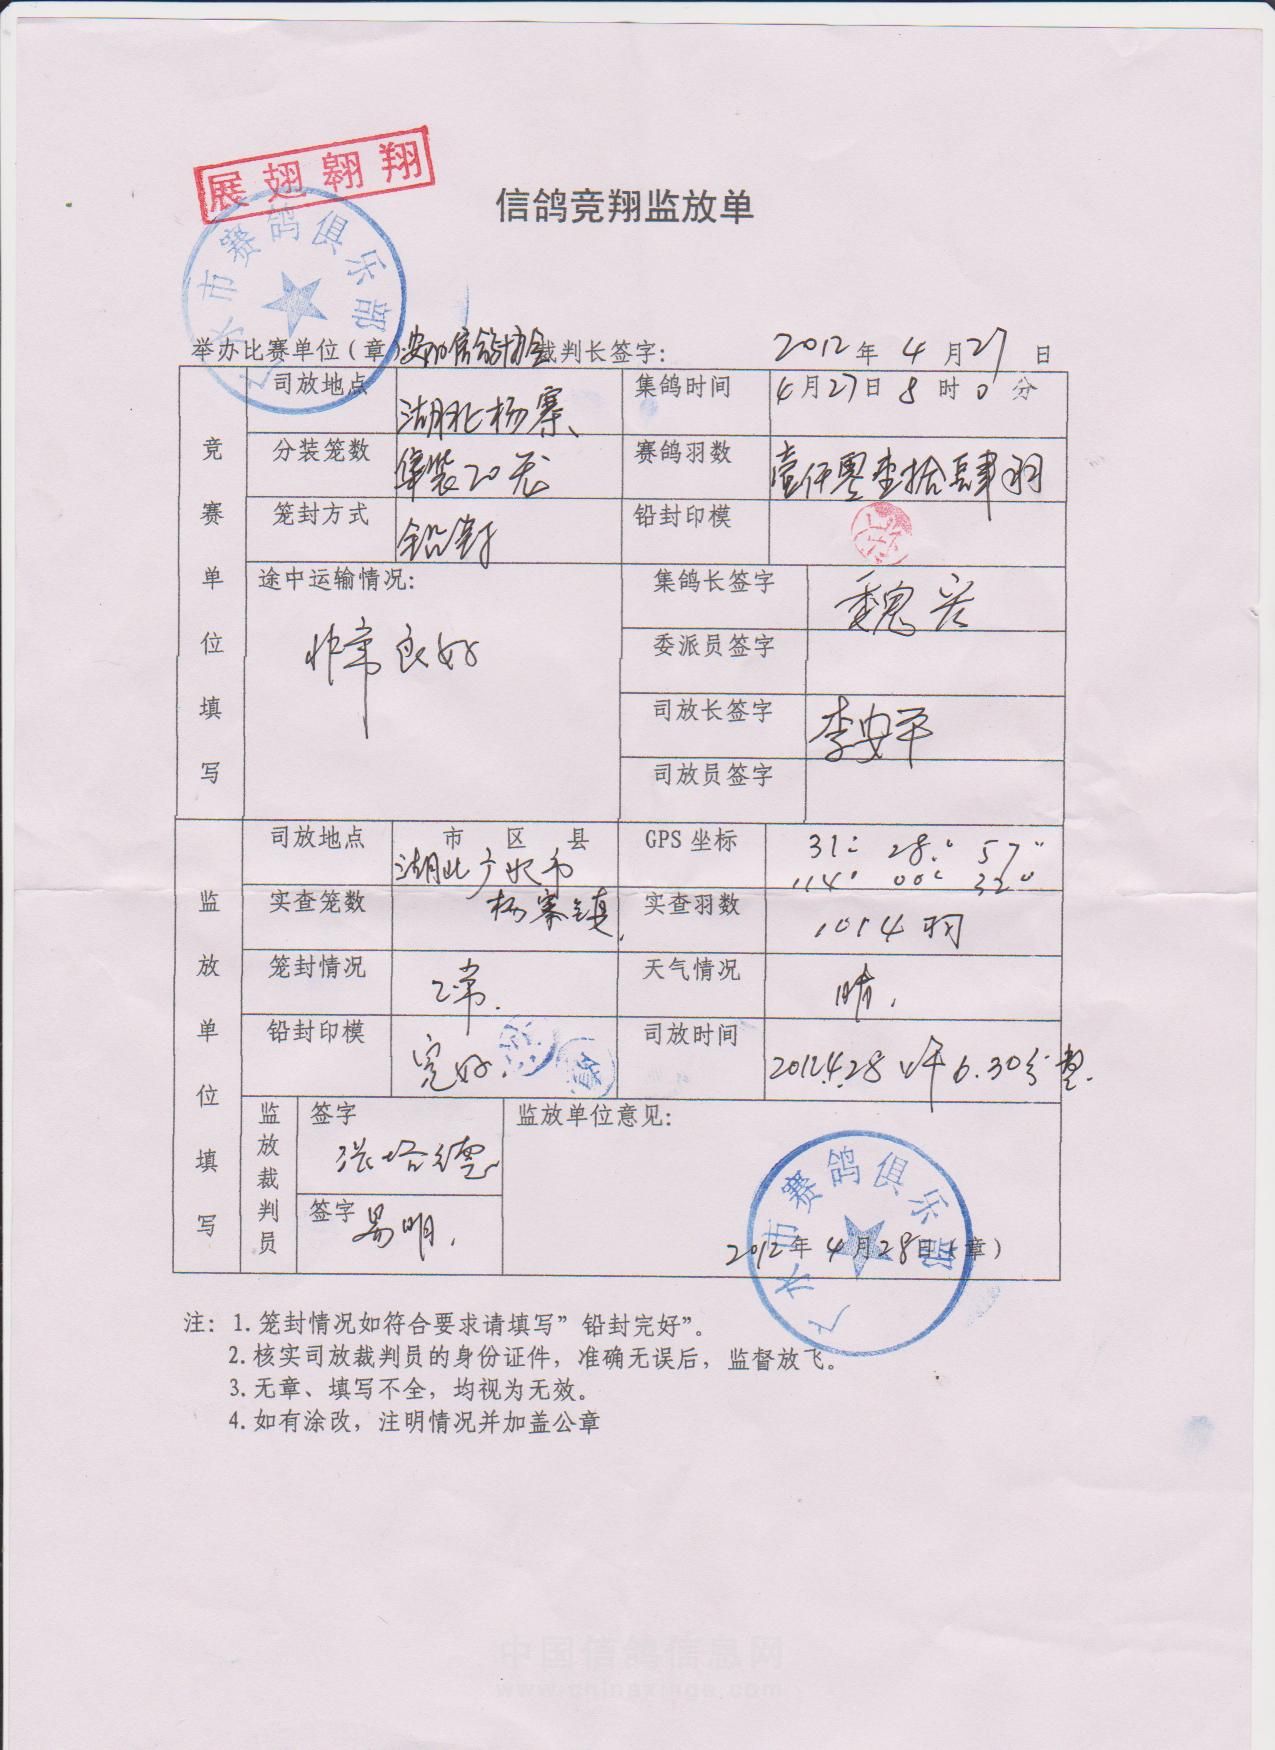 展翅翱翔
信鸽竞翔监放单
广水市赛鸽俱乐部
举办比赛单位（章）:信鸽协会 裁判长签字: 2012年4月27日
竞赛单位填写
司放地点 湖北杨寨、 集鸽时间 4月27日8时0分
分装笼数 集装20笼 赛鸽羽数 壹仟零壹拾肆羽
笼封方式 铅封 铅封印模
途中运输情况: 集鸽长签字 魏
非常良好 委派员签字
司放长签字 李安平
司放员签字
监放单位填写
司放地点 市 区 县 GPS 坐标 31° 28' 57"
湖北广水市 114° 00' 32"
实查笼数 杨寨镇. 实查羽数 1014羽
笼封情况 正常. 天气情况 晴.
铅封印模 完好. 司放时间 2012.4.28 6.30分整.
监放裁判员 签字 监放单位意见:
签字 易明.
广水市赛鸽俱乐部
2012年4月28日（章）
注: 1.笼封情况如符合要求请填写”铅封完好”。
2.核实司放裁判员的身份证件，准确无误后，监督放飞。
3.无章、填写不全，均视为无效。
4.如有涂改，注明情况并加盖公章
中国信鸽信息网
www.chinaxinge.com